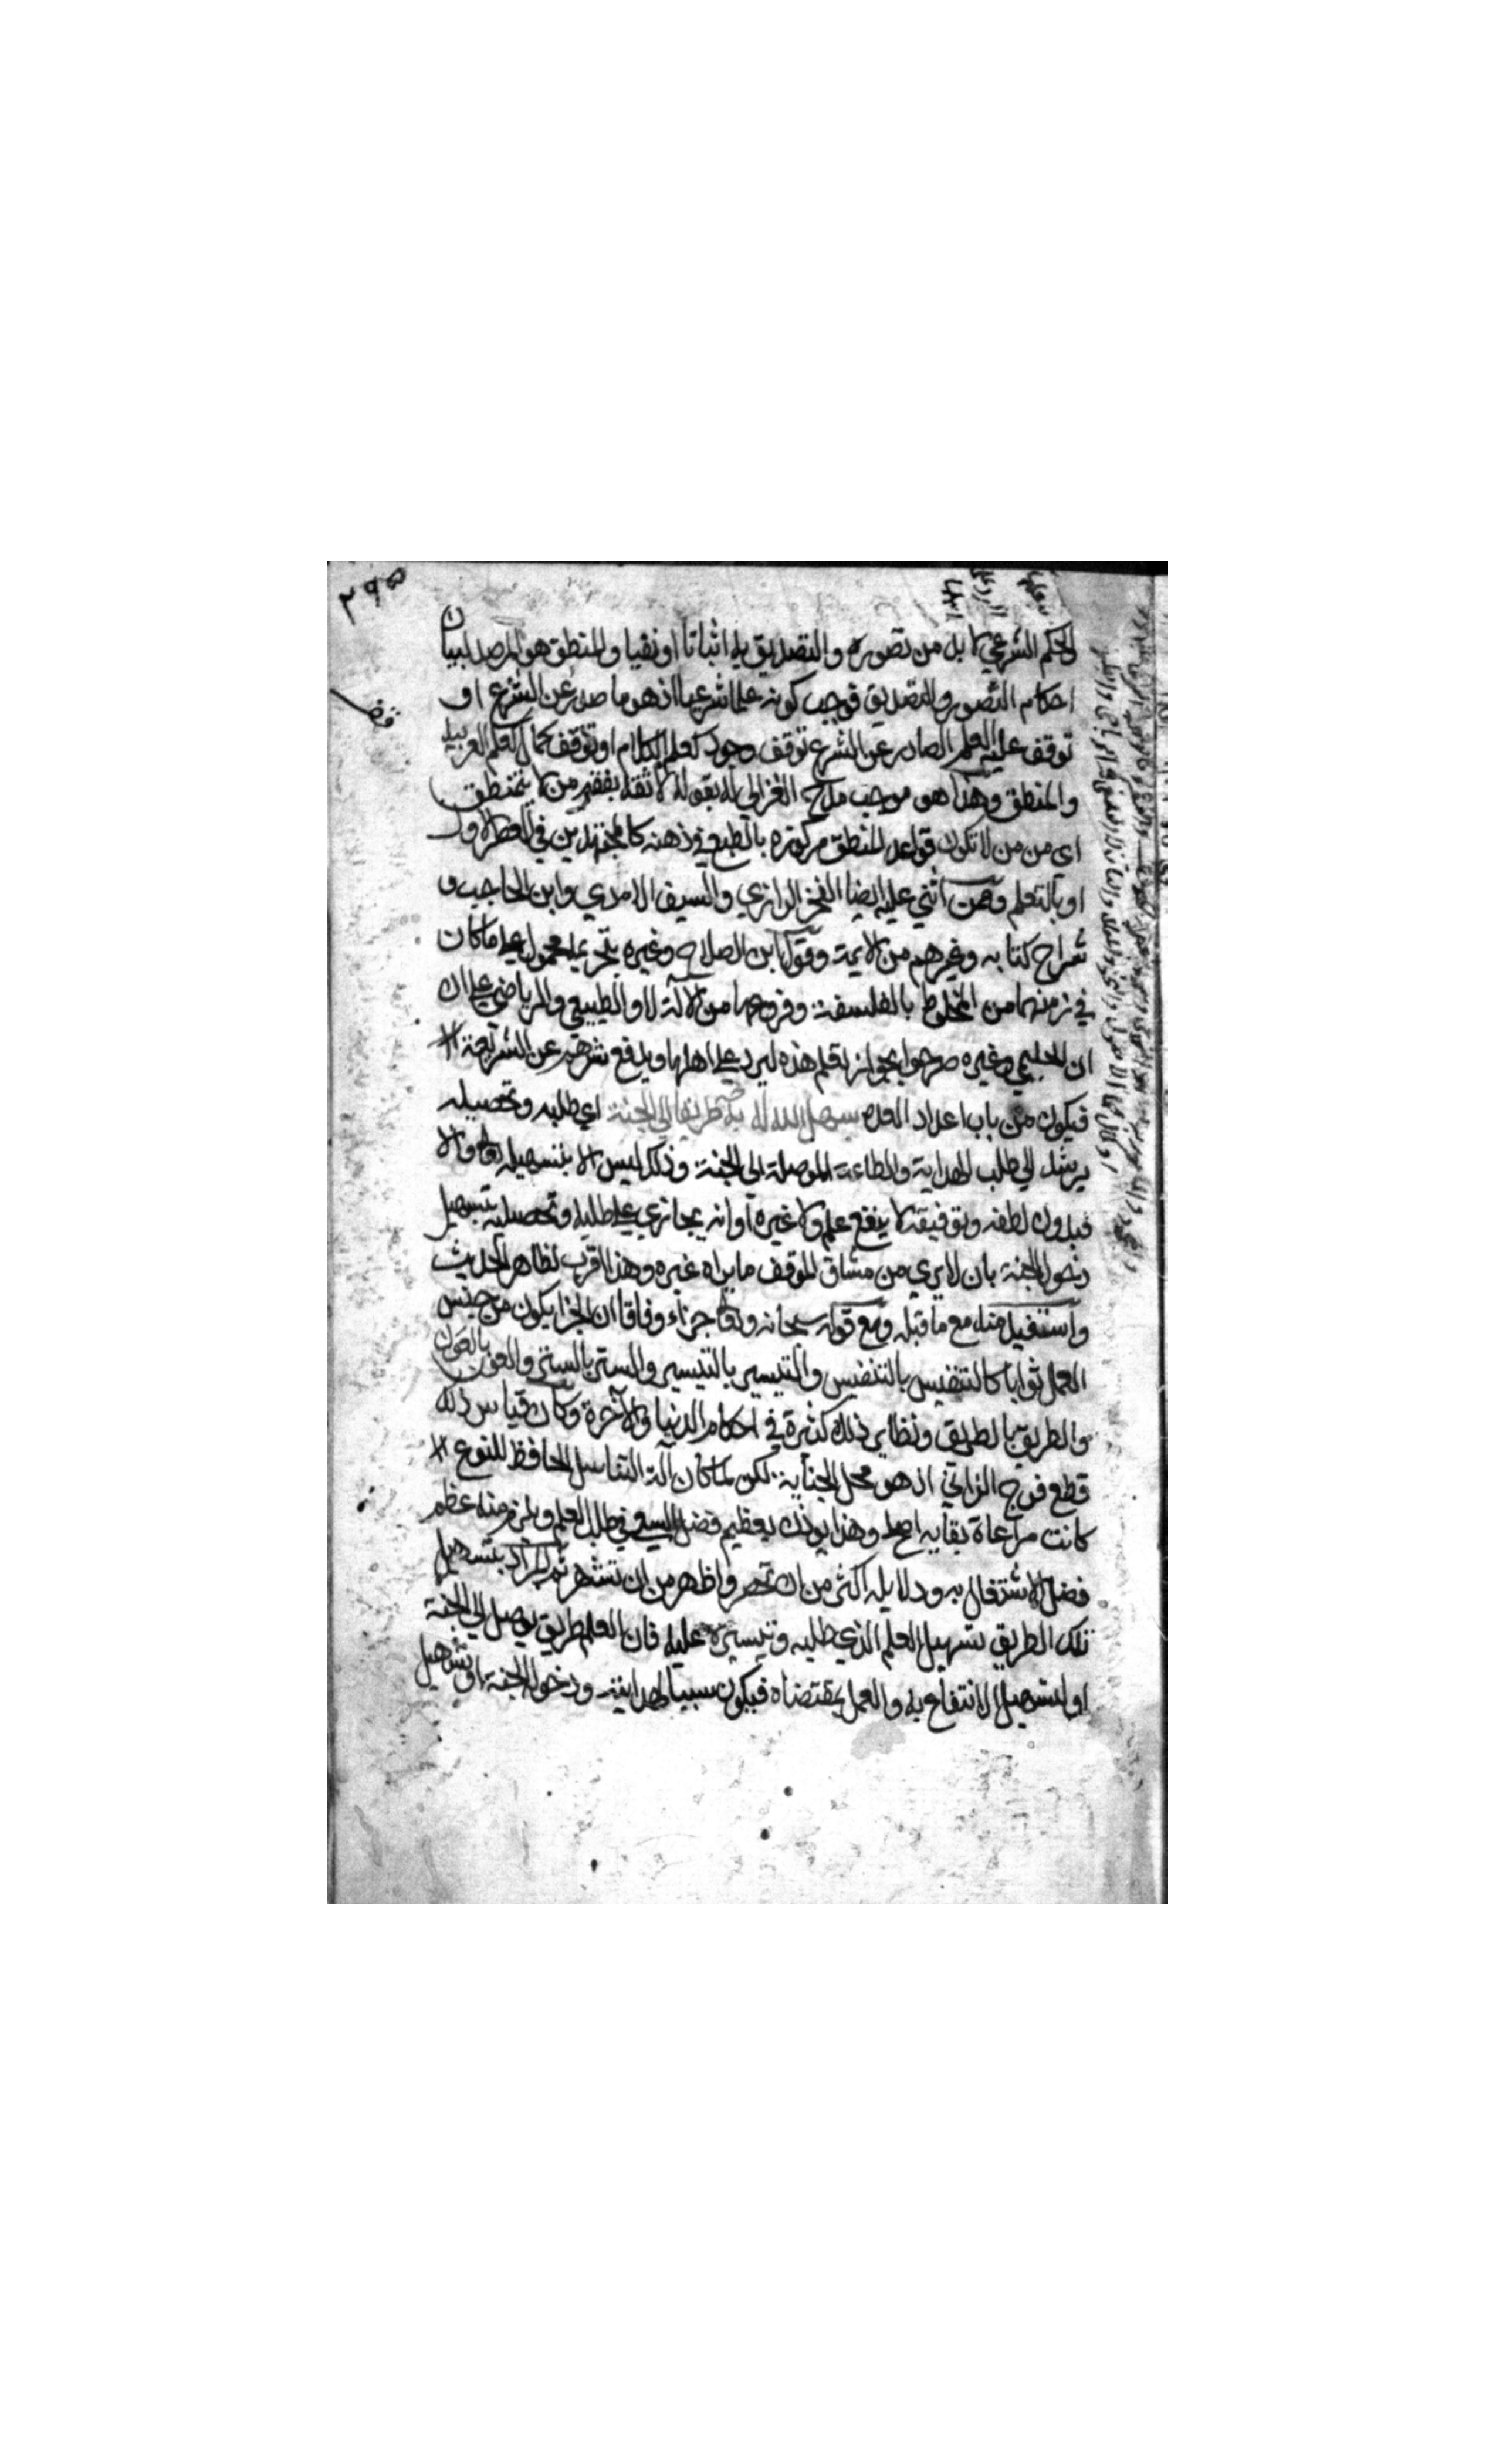 ٢٩٥
الحكم الشرعي لا بد من تصوره والتصديق به اثباتا او نفيا والمنطق هو المرصد لبيان
احكام التصور والتصديق فوجب كونه علما شرعيا اذ هو ما صدر عن الشرع او
توقف عليه العلم الصادر عن الشرع توقف وجود كعلم الكلام او توقف كمال كعلم العربية
والمنطق وهذا هو موجب مدح الغزالي له بقوله لا ثقة بفقه من لا يتمنطق
اي من من لا تكون قواعد المنطق مركوزة بالطبع في ذهنه كالمجتهدين في العصر الاول
او بالتعلم وممن اثني عليه ايضا الفخر الرازي والسيف الامدي وابن الحاجب و
شراح كتابه وغيرهم من الايمة وقول ابن الصلاح وغيره بتحريمه محمول على ما كان
في زمنهما من المخلوط بالفلسفة وفروعها من الالة لاو الطبيعي والرياضي على ان
ان الحليمي وغيره صرحوا بجواز تعلم هذه ليرد على اهلها ويدفع شرهم عن الشريعة
فيكون من باب اعداد العدة سهل الله له به طريقا الي الجنة اي طلبه وتحصيله
يرشد الي طلب الهداية والطاعة الموصلة الى الجنة وذلك ليس الا بتسهيله تعا والا
فبدون لطفه وتوفيقه لا ينفع علم ولا غيره او انه يجازي على طلبه وتحصيله بتسهيل
دخول الجنة بان لا يري من مشاق الموقف ما يراه غيره وهذا اقرب لظاهر الحديث
واستفيد منه مع ما قبله ومع قوله سبحانه وتعا جزاء وفاقا ان الجزا يكون من جنس
العمل ثوابا كالتنفيس بالتنفيس والتيسير بالتيسير والستر بالستر والعون بالعون
والطريق بالطريق ونظاير ذلك كثيرة في احكام الدنيا والآخرة وكان قياس ذلك
قطع فرج الزاني اذ هو محل الجناية لكن لما كان آلة التناسل الحافظ للنوع
كانت مراعاة بقايه اصلح وهذا يوذن بعظيم فضل السعي في طلب العلم ويلزم منه عظم
فضل الاشتغال به ودلايله اكثر من ان تحصر واظهر من ان تشهر ثم المراد بتسهيل
تلك الطريق تسهيل العلم الذي طلبه وتيسيره عليه فان العلم طريق يوصل الي الجنة
او لتسهيل الانتفاع به والعمل بمقتضاه فيكون سببا لهدايته ودخول الجنة او تسهيل